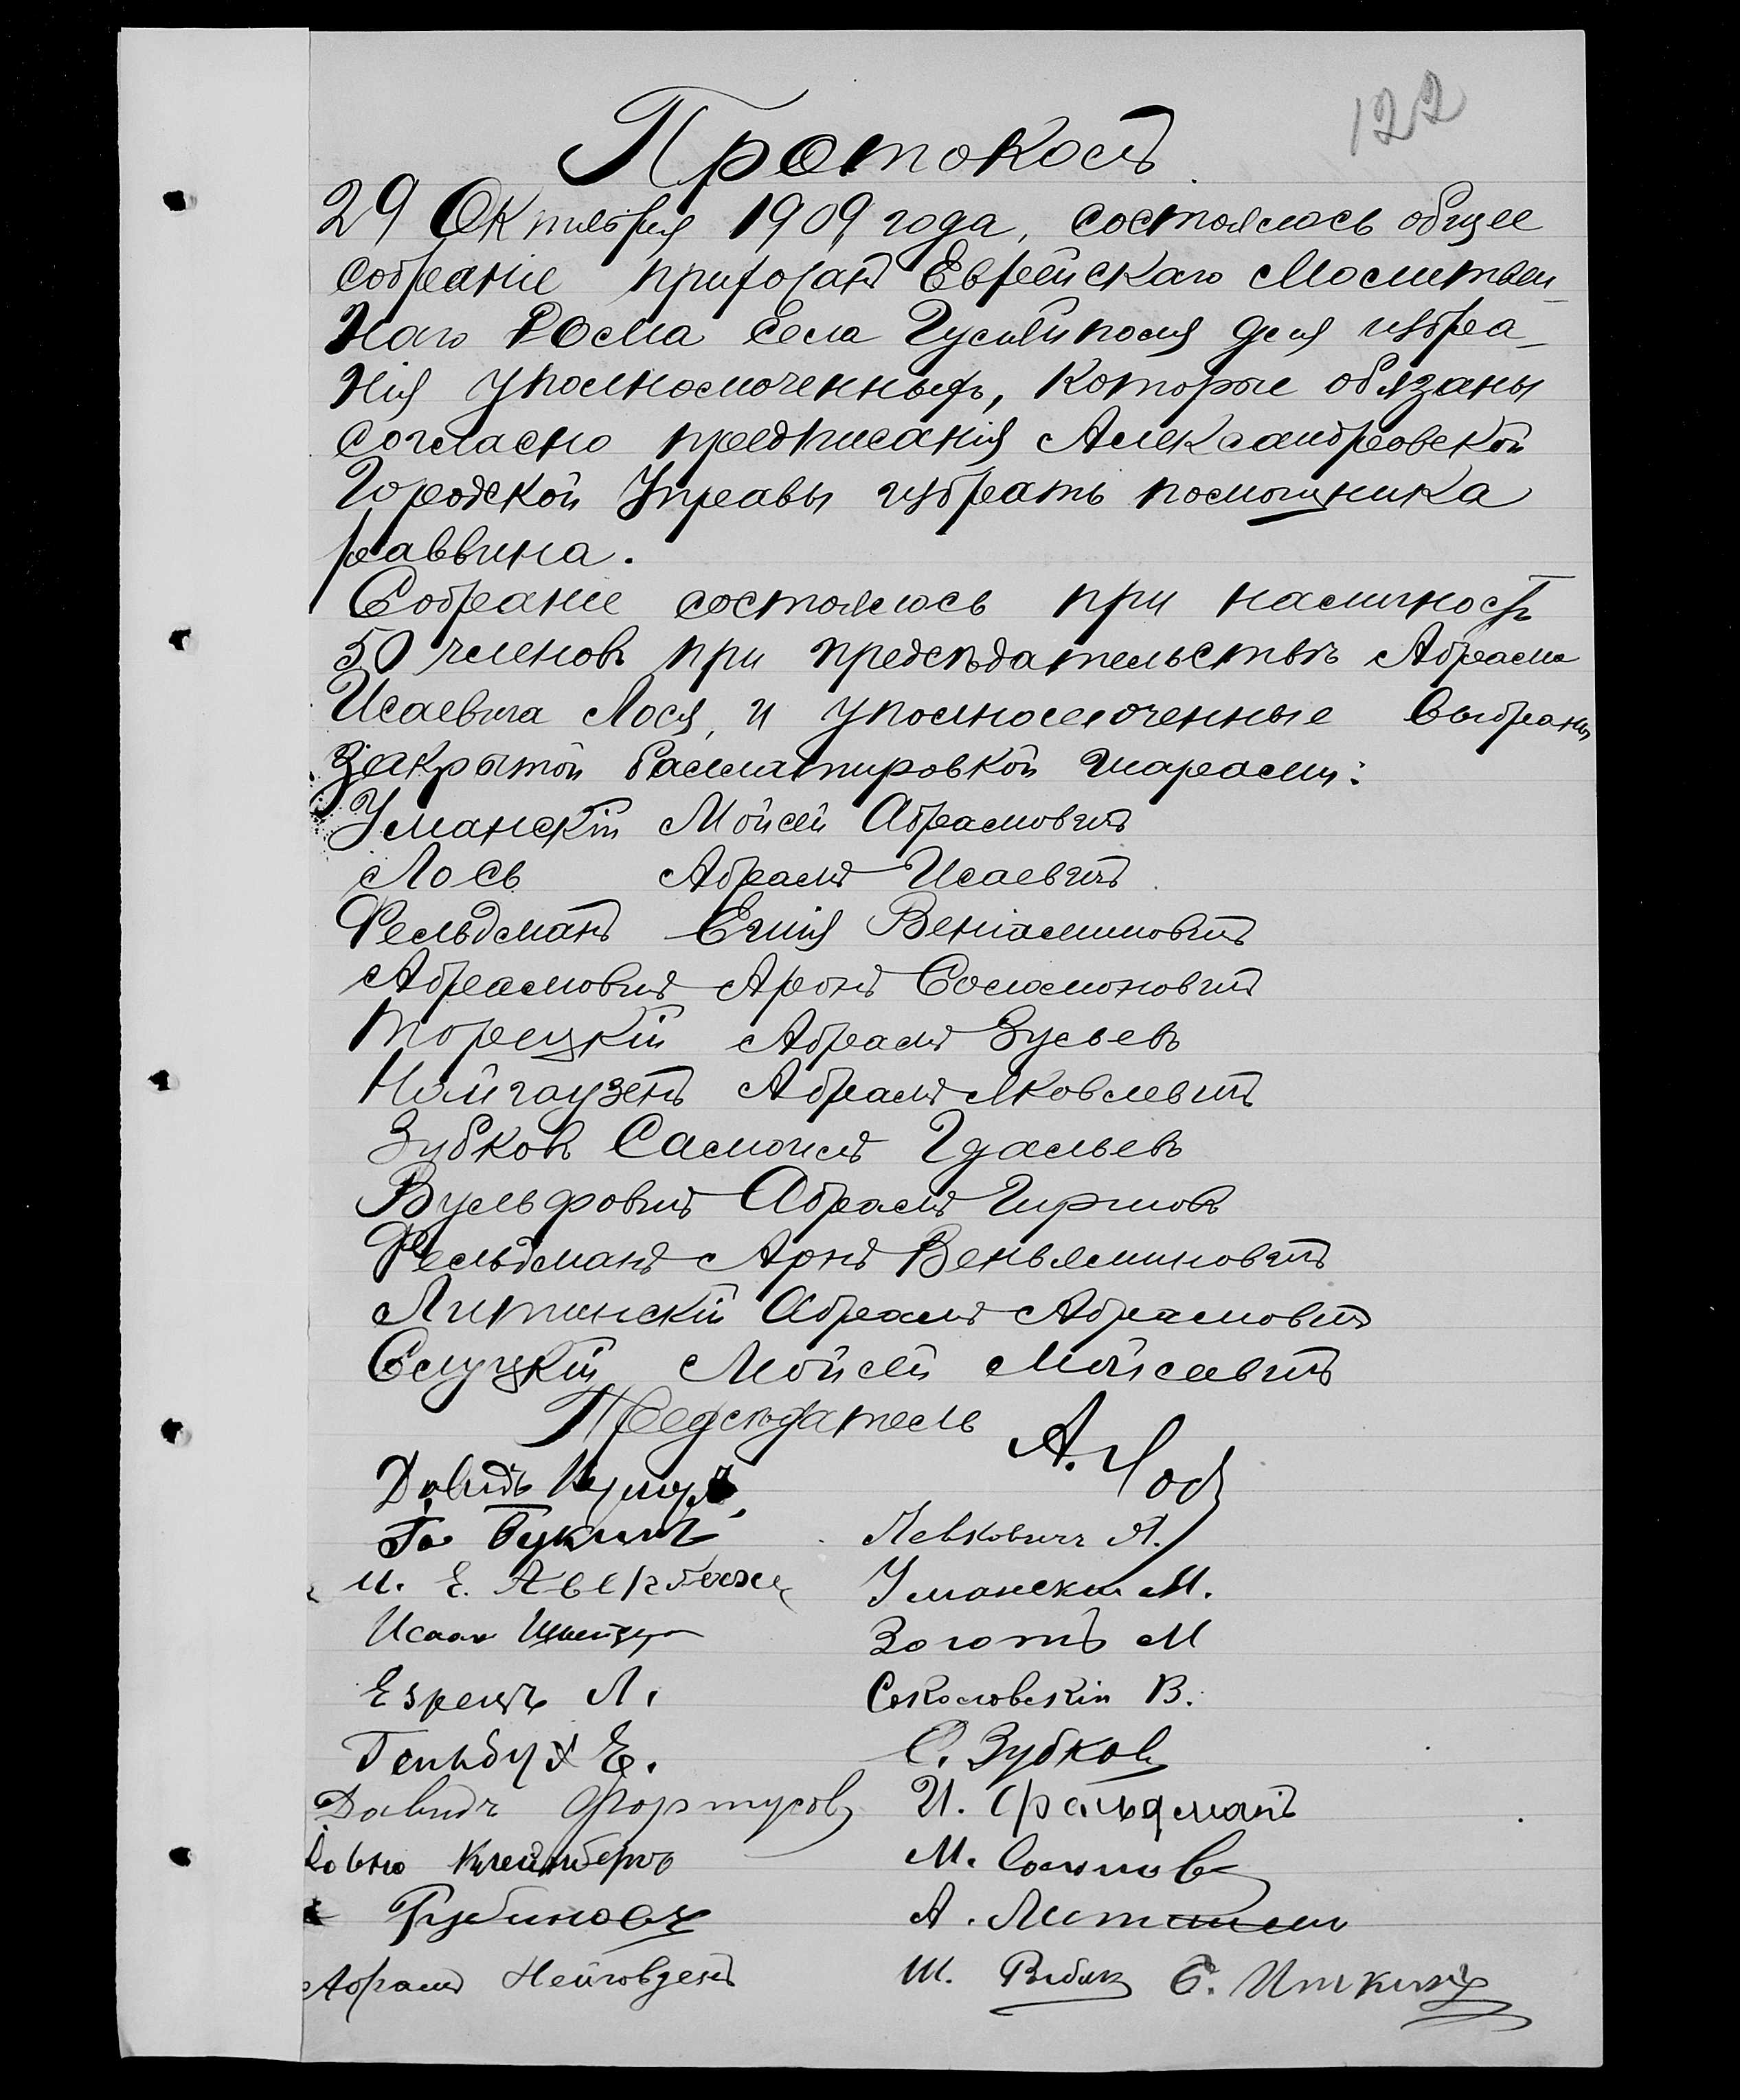 122
Протоколъ
29 Октября 1909 года, состоялось общее
собраніе прихожанъ Еврейскаго Молитвен-
наго Дома села Гуляйполя для избра-
нія уполномоченныхъ, которые обязаны
согласно предписанія Александровской
Городской Управы избрать помощника
раввина.
Собраніе состоялось при наличности
50 членовъ при предсѣдательствѣ Абрама
Исаевича Лося, и уполномоченные выбраны
закрытой баллатировкой шарами:
Уманскій Мойсей Абрамовичъ
Лось Абрамъ Исаевичъ
Фельдманъ Епиія Веніаминовичъ
Абрамовичъ Аронъ Соломоновичъ
Торецкій Абрамъ Зусьевъ
Найгаузенъ Абрамъ Яковлевичъ
Зубковъ Самоилъ Гдальевъ
Вульфовичъ Абрамъ Гиршовъ
Фельдманъ Арнъ Веньяминовичъ
Литинскій Абрамъ Абрамовичъ
Слуцкій Мойсей Мойсеевичъ
Предсѣдатель А. Лось
Давидъ
Левковичъ А.
И. Е. Авербахъ
Уманскій М.
Исаакъ
Золотъ М
Езрецъ Л.
Соколовскій В.
Гельбухъ Е.
С. Зубковъ
Давидъ Фортусовъ
И. Фельдманъ
Клейнбергъ
М.
Рубиновъ
А.
Абрамъ Нейговзенъ
Ш. С. Иткинъ